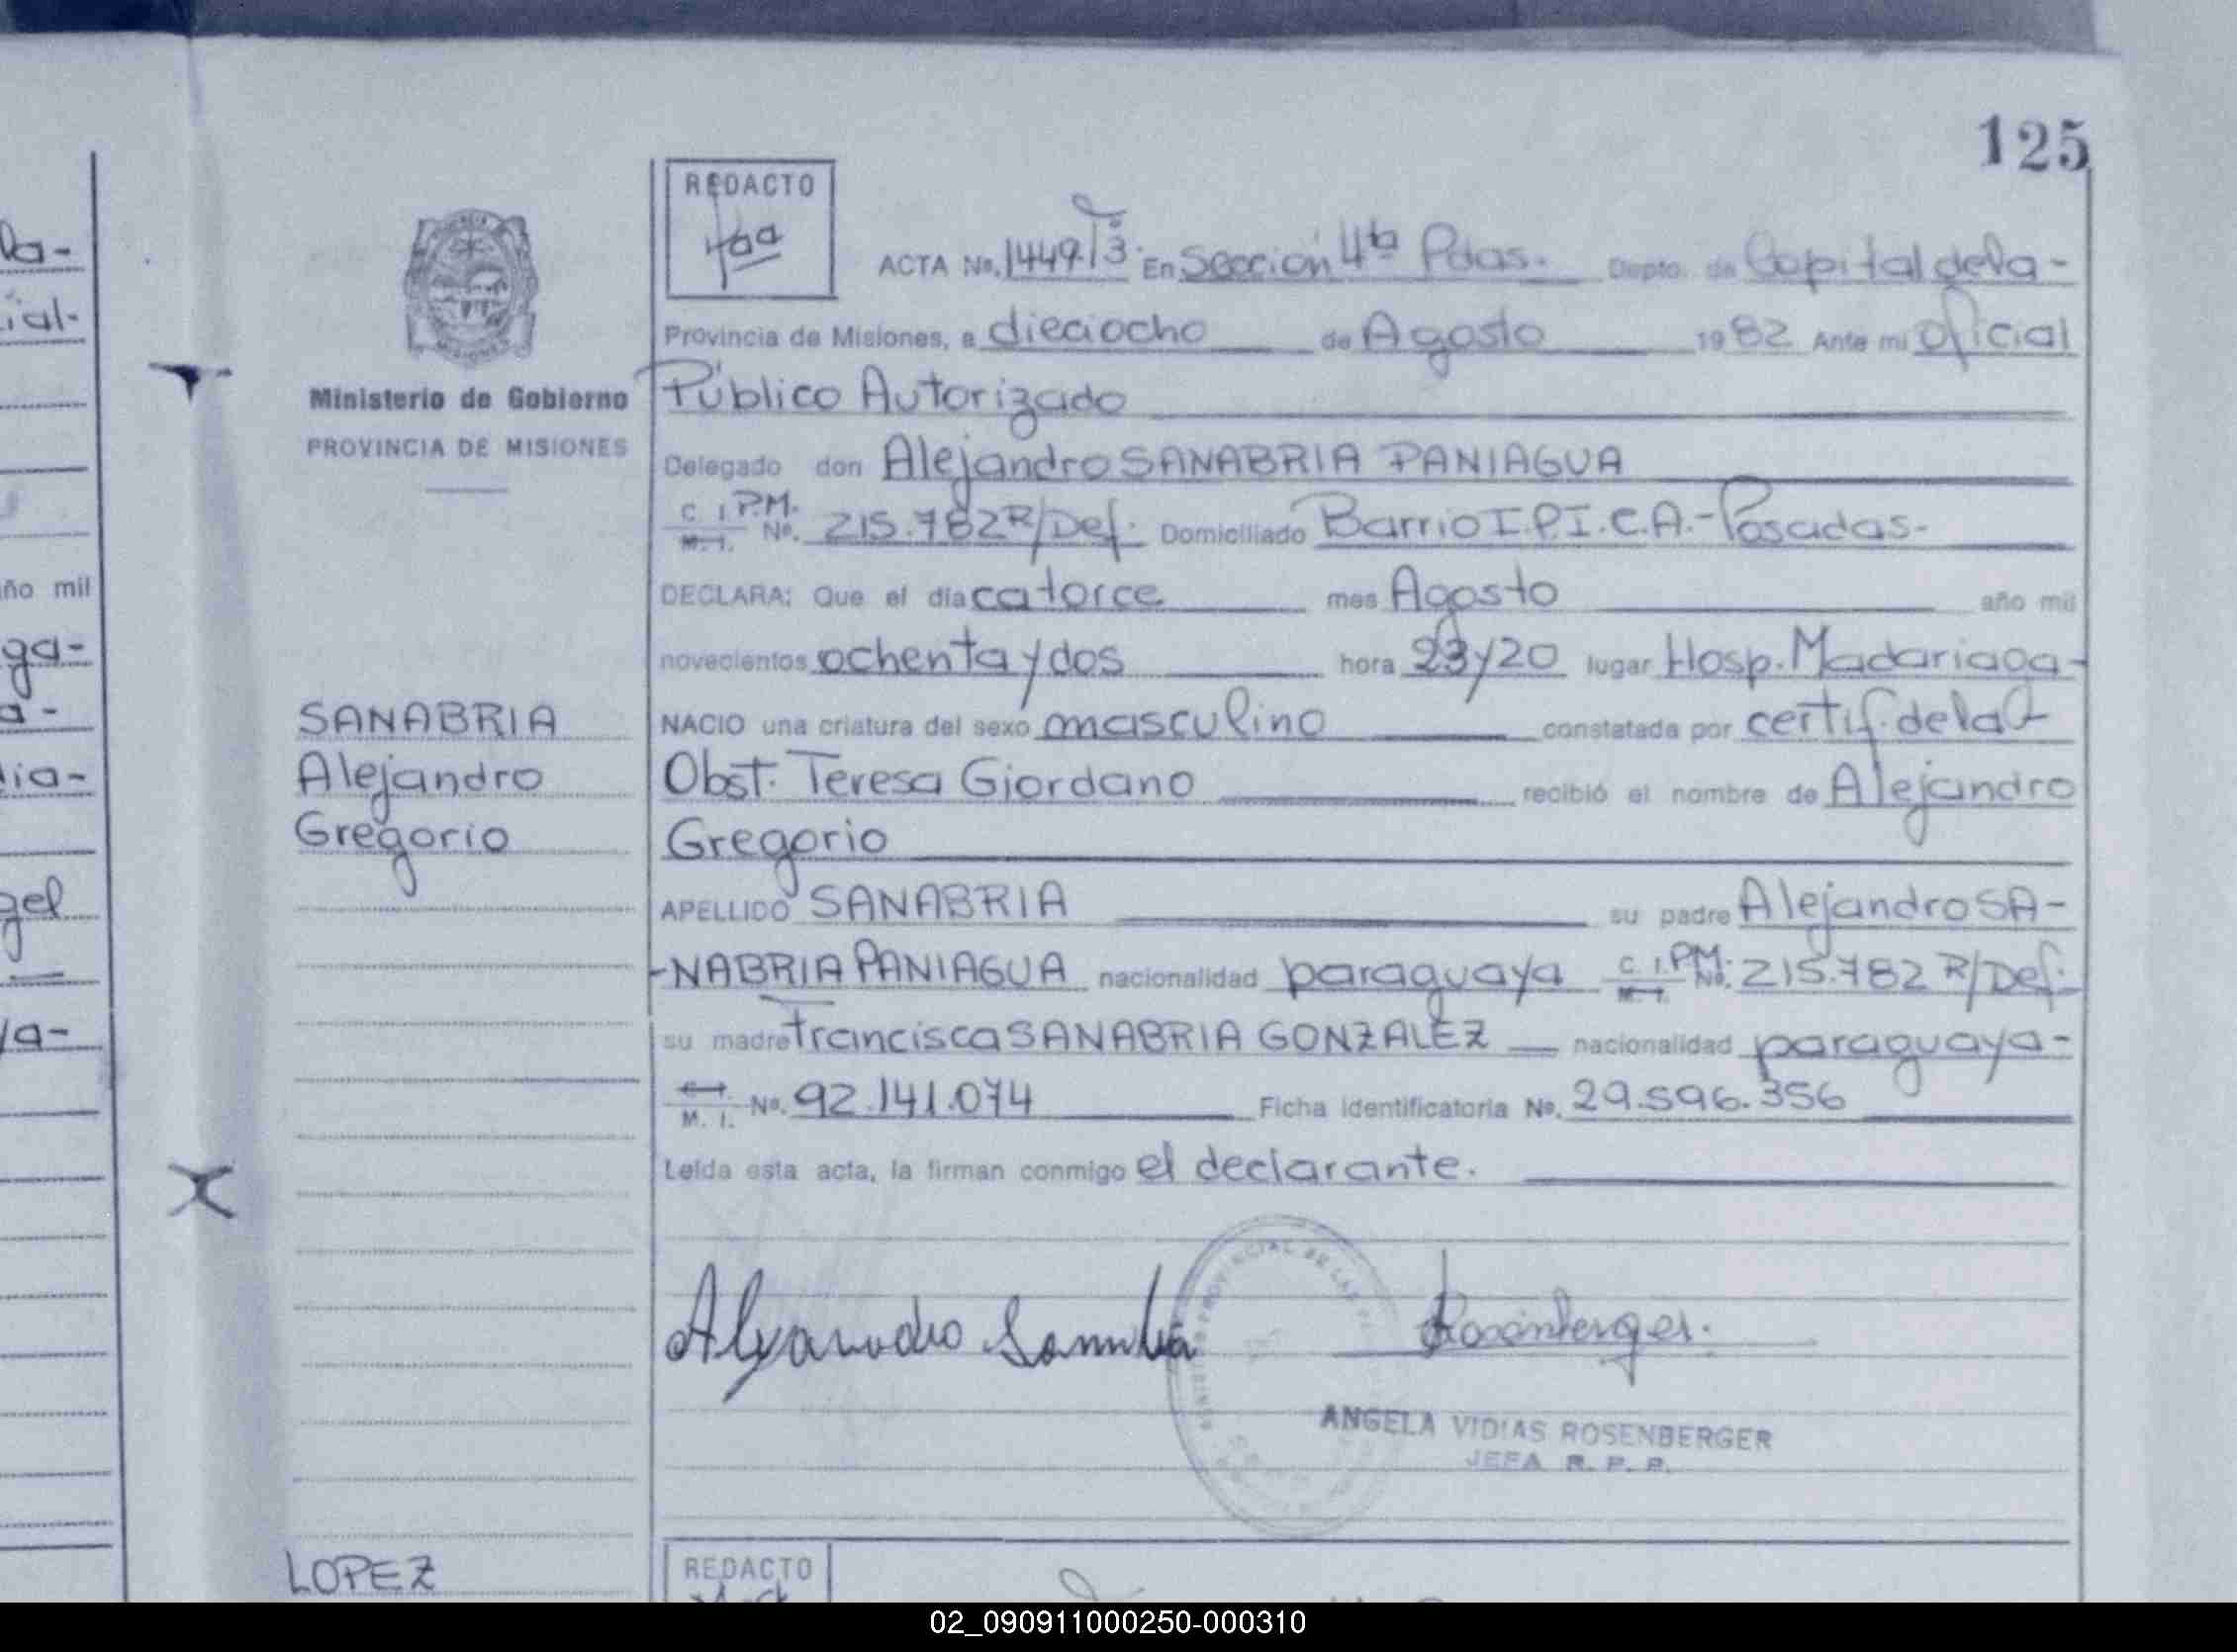 125
REDACTO
ACTA No. 1449 Tº3 En Sección 4ta Pdas. Depto. de Capital de la-
Provincia de Misiones, a dieciocho de Agosto 1982 Ante mi Oficial
Público Autorizado
Ministerio de Gobierno
PROVINCIA DE MISIONES
Delegado don Alejandro SANABRIA PANIAGUA
C. I. P.M. M. I. No. 215.782 R/Def. Domiciliado Barrio I.P.I.C.A.-Posadas.-
DECLARA: Que el día catorce mes Agosto año mil
novecientos ochenta y dos hora 23y20 lugar Hosp. Madariaga-
SANABRIA
Alejandro
Gregorio
NACIO una criatura del sexo masculino constatada por certif. de la
Obst. Teresa Giordano recibió el nombre de Alejandro
Gregorio
APELLIDO SANABRIA su padre Alejandro SA-
-NABRIA PANIAGUA nacionalidad paraguaya C. I. P.M. M. I. No. 215.782 R/Def.
su madre Francisca SANABRIA GONZALEZ nacionalidad paraguaya-
M. I. No. 92.141.074 Ficha identificatoria No. 29.596.356
Leída esta acta, la firman conmigo el declarante.
Alejandro Sanabria
Rosenberger.
ANGELA VIDIAS ROSENBERGER
JEFA R. P. P.
LOPEZ
REDACTO
la-
ial-
año mil
ga-
a-
dia-
gel
ya-
02_090911000250-000310